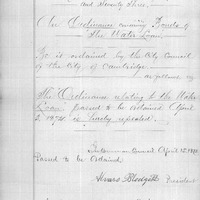 and Seventy three.
An Ordinance concerning Bonds of
the Water Loan.
Be it ordained by the City Council
of the City of Cambridge.
as follows
The Ordinance relating to the Water
Loan passed to be ordained April
2, 1873, is hereby repealed.
In Common Council April 15, 1873
Passed to be Ordained.
President